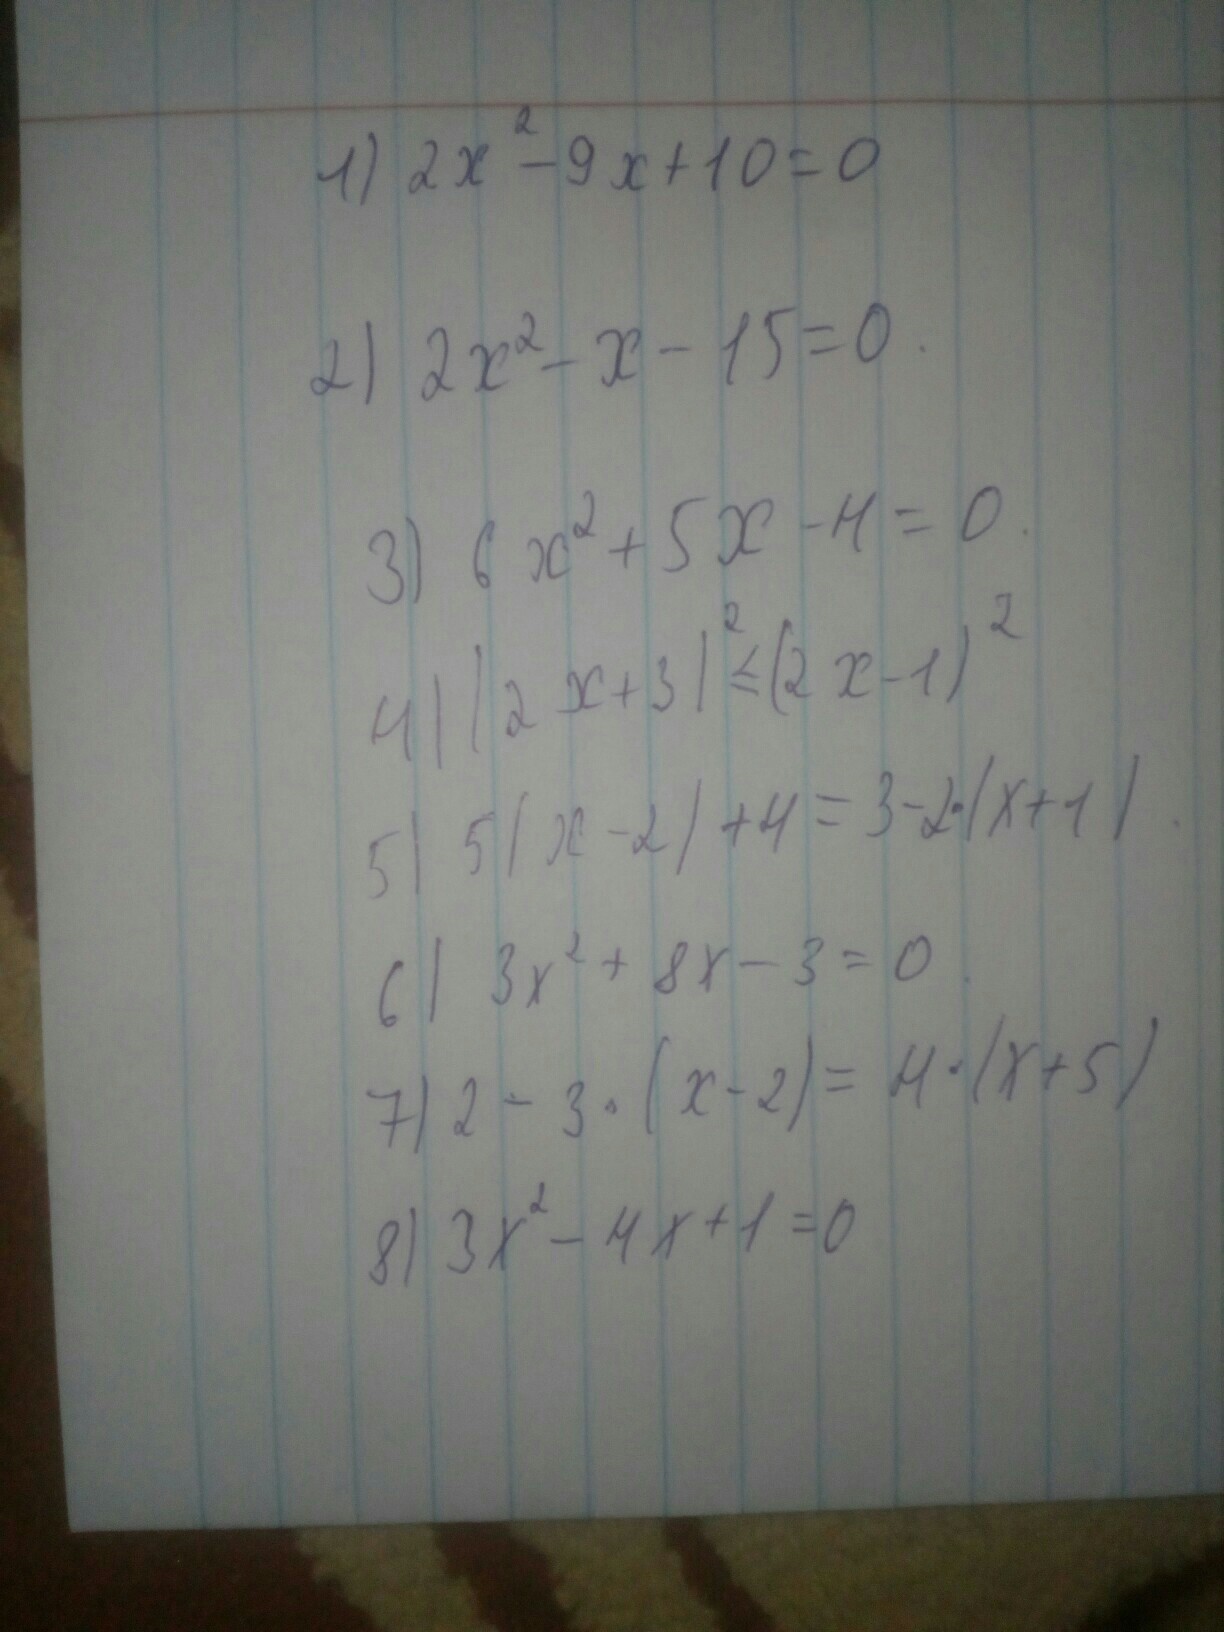 1) 2x²-9x+10=0
2) 2x²-x-15=0.
3) 6x²+5x-4=0.
4) (2x+3)²≤(2x-1)²
5) 5(x-2)+4=3-2·(x+1).
6) 3x²+8x-3=0.
7) 2-3·(x-2)=4·(x+5)
8) 3x²-4x+1=0